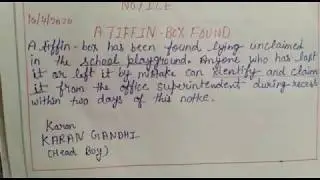 NOTICE
10/4/2020
A TIFFIN-BOX FOUND
A tiffin-box has been found lying unclaimed
in the school playground. Anyone who has lost
it or left it by mistake can identify and claim
it from the office superintendent during recess
within two days of this notice.
Karan
KARAN GANDHI
(Head Boy)